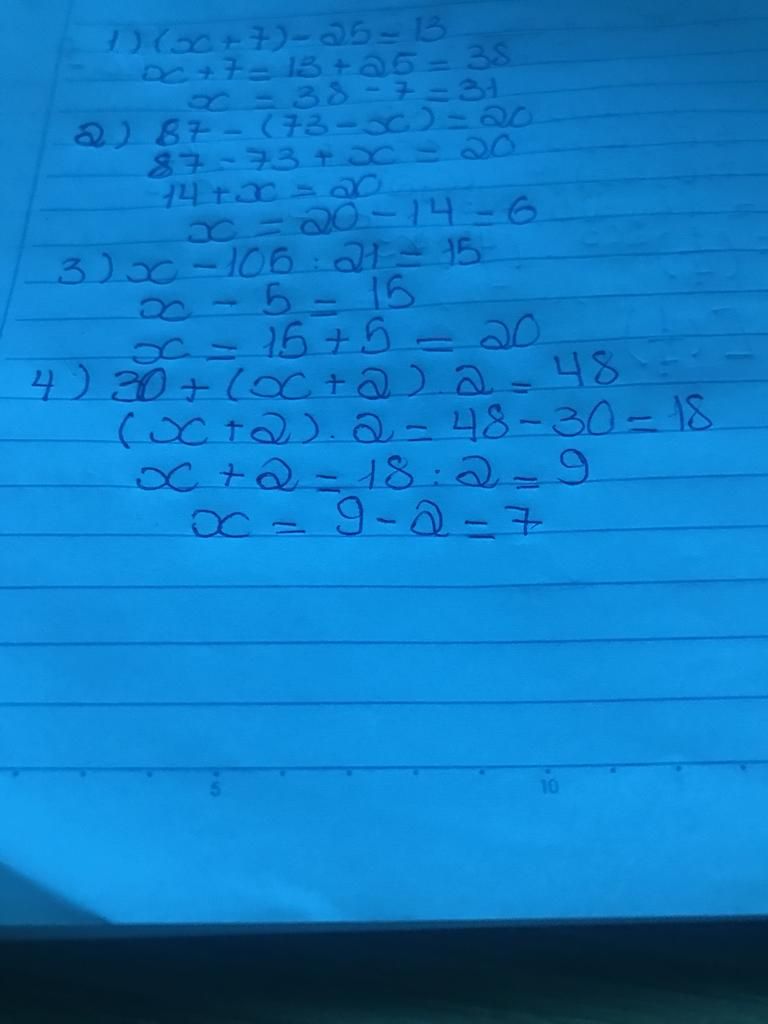 1) (x+7) - 25 = 13
x+7 = 13 + 25 = 38
x = 38 - 7 = 31
2) 87 - (73 - x) = 20
87 - 73 + x = 20
14 + x = 20
x = 20 - 14 = 6
3) x - 105 : 21 = 15
x - 5 = 15
x = 15 + 5 = 20
4) 30 + (x + 2) . 2 = 48
(x + 2) . 2 = 48 - 30 = 18
x + 2 = 18 : 2 = 9
x = 9 - 2 = 7
5 10